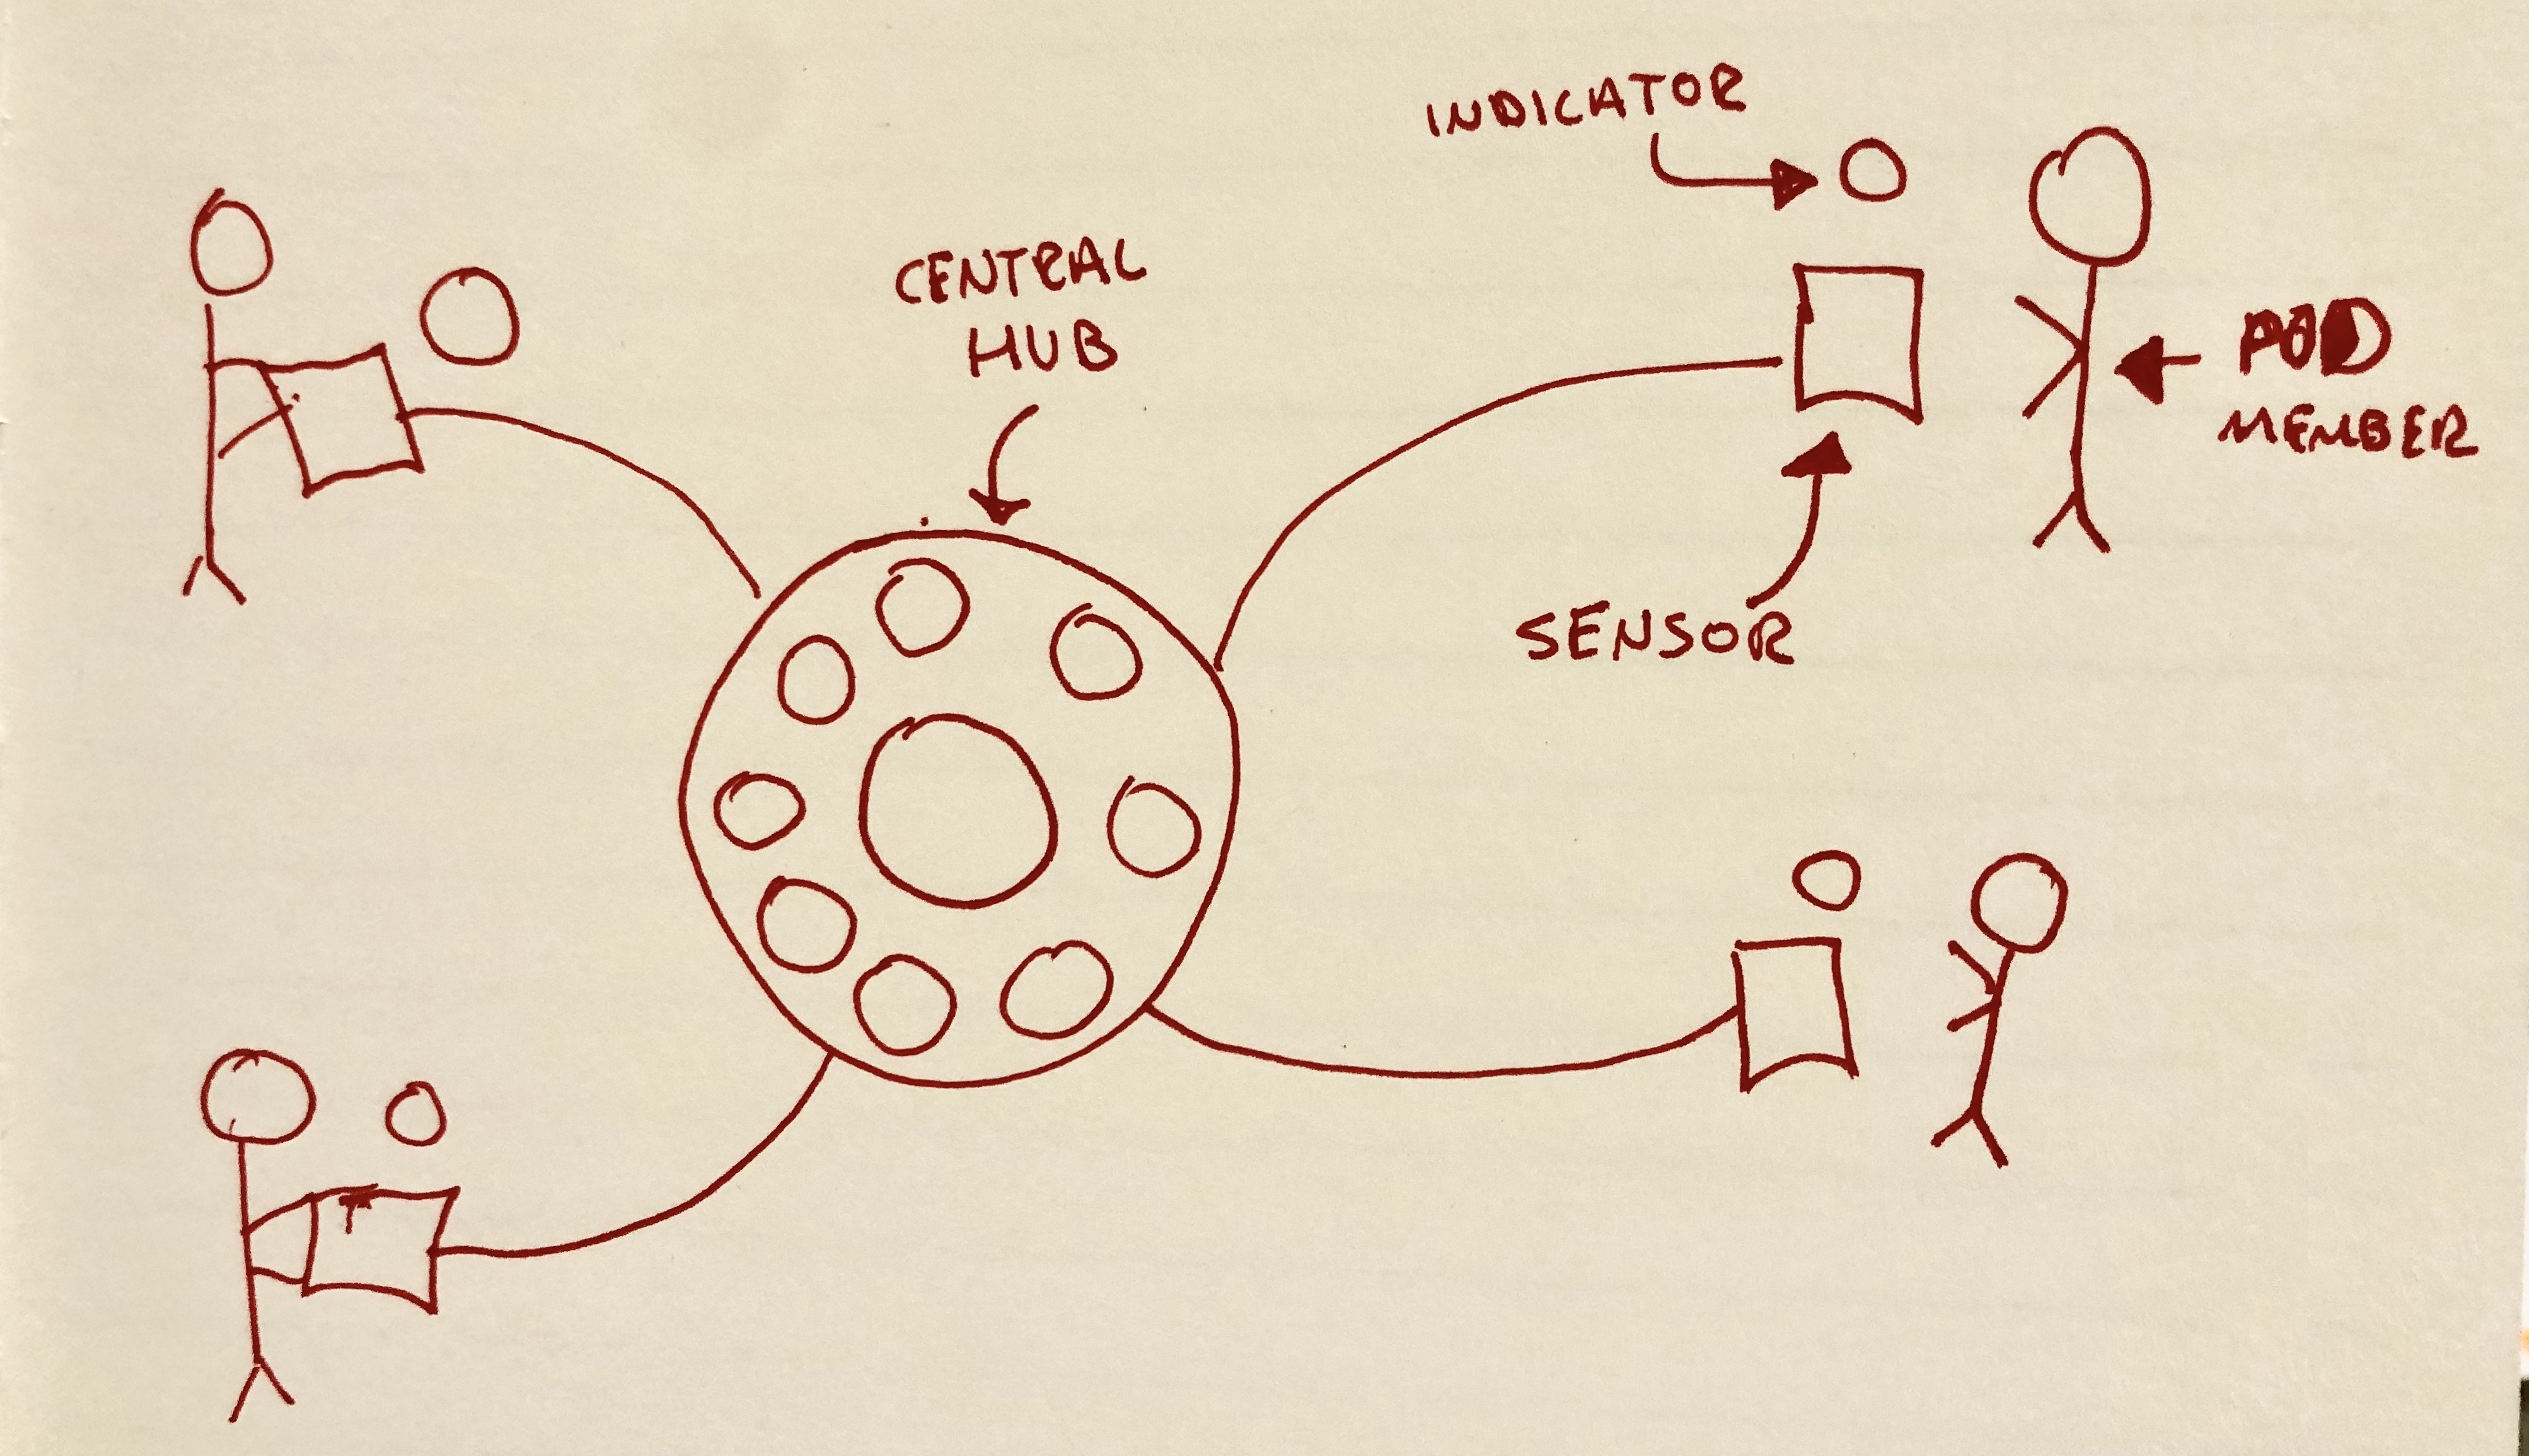 INDICATOR
CENTRAL
HUB
POD
MEMBER
SENSOR